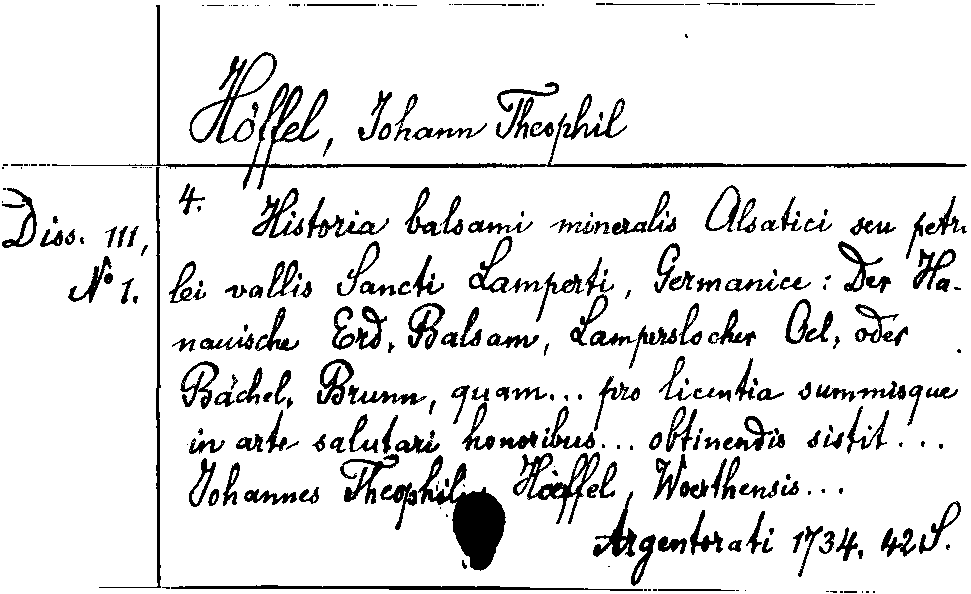 Höffel, Johann Theophil
4.
Diss. III,
Nº 1.
Historia balsami mineralis Alsatici seu petro
lei vallis Sancti Lamperti, Germanice: Der Ha-
nauische Erd, Balsam, Lamperslocher Oel, oder
Bächel, Brunn, quam... pro licentia summisque
in arte salutari honoribus... obtinendis sistit...
Johannes Theophilus Hoeffel, Woerthensis...
Argentorati 1734. 42 S.